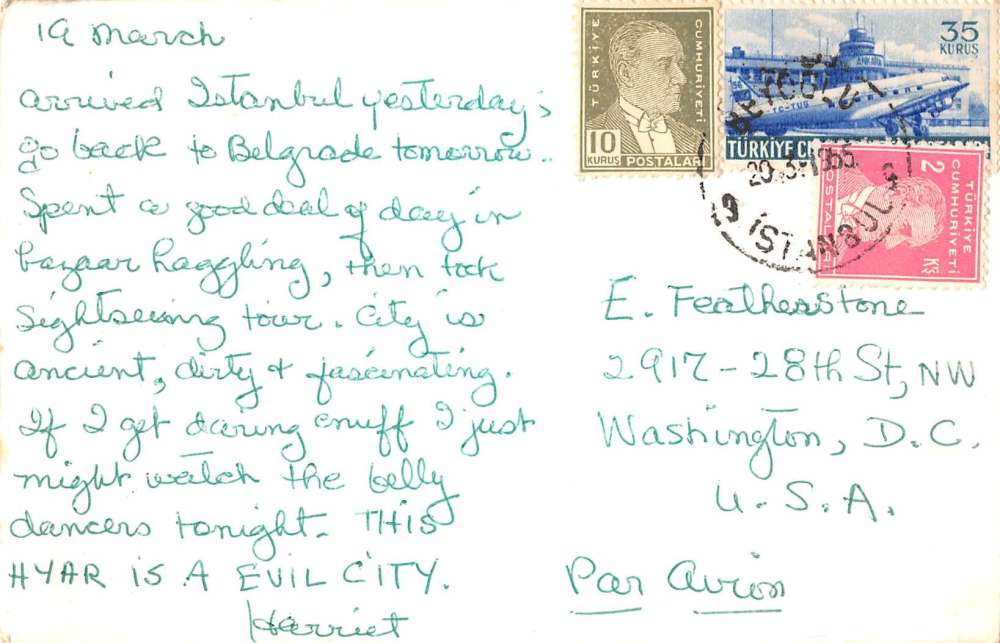 19 March
arrived Istanbul yesterday;
go back to Belgrade tomorrow.
Spent a good deal of day in
bazaar haggling, then took
sightseeing tour. City is
ancient, dirty & fascinating.
If I get daring enuff I just
might watch the belly
dancers tonight. THIS
HYAR IS A EVIL CITY.
Harriet
TÜRKİYE
CUMHURİYETİ
10
KURUŞ POSTALARI
35
KURUŞ
ANKARA
TÜRKİYE
BEYOĞLU
20.3.1955
İSTANBUL
TÜRKİYE
CUMHURİYETİ
2
KŞ
POSTALARI
E. Featherstone
2917 - 28th St, NW
Washington, D.C.
U.S.A.
Par Avion